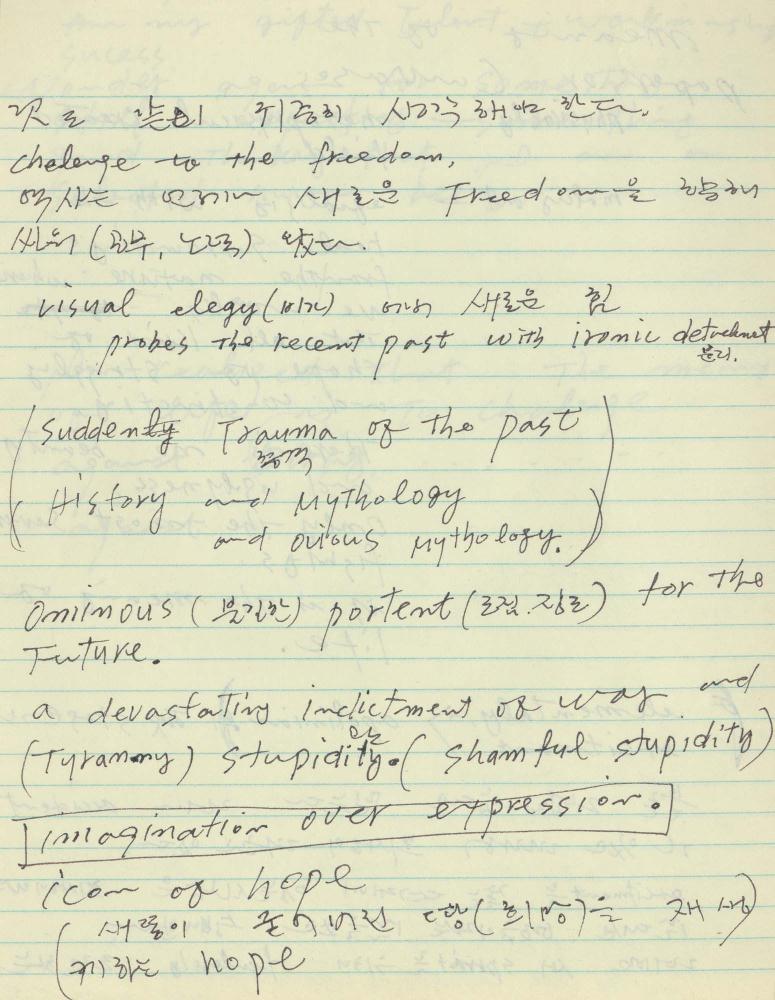 것도 같은 귀중히 생각해야 한다.
chelenge to the freedom,
역사는 언제나 새로운 Freedom을 향해
싸워 (공부, 노력) 왔다.
visual elegy (비가) 에서 새로운 힘
probes the recent past with ironic detachment
분리.
Suddenly Trauma of the past
충격
History and Mythology
and Mythology.
Ominous (불길한) portent (조짐. 징조) for the
Future.
a devastating indictment of war and
(Tyrammy) stupidity. (shamful stupidity)
imagination over expression.
icon of hope
새롭이 죽어버린 (희망)을 재생
케하는 hope